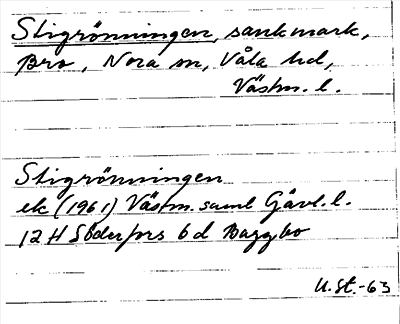 Stigrönningen, sankmark,
Bro, Nora sn, Våla hd,
Västm. l.
Stigrönningen
ek (1961) Västm. saml Gävl. l.
12 H Söderfors 6 d Baggbo
U.St.-63